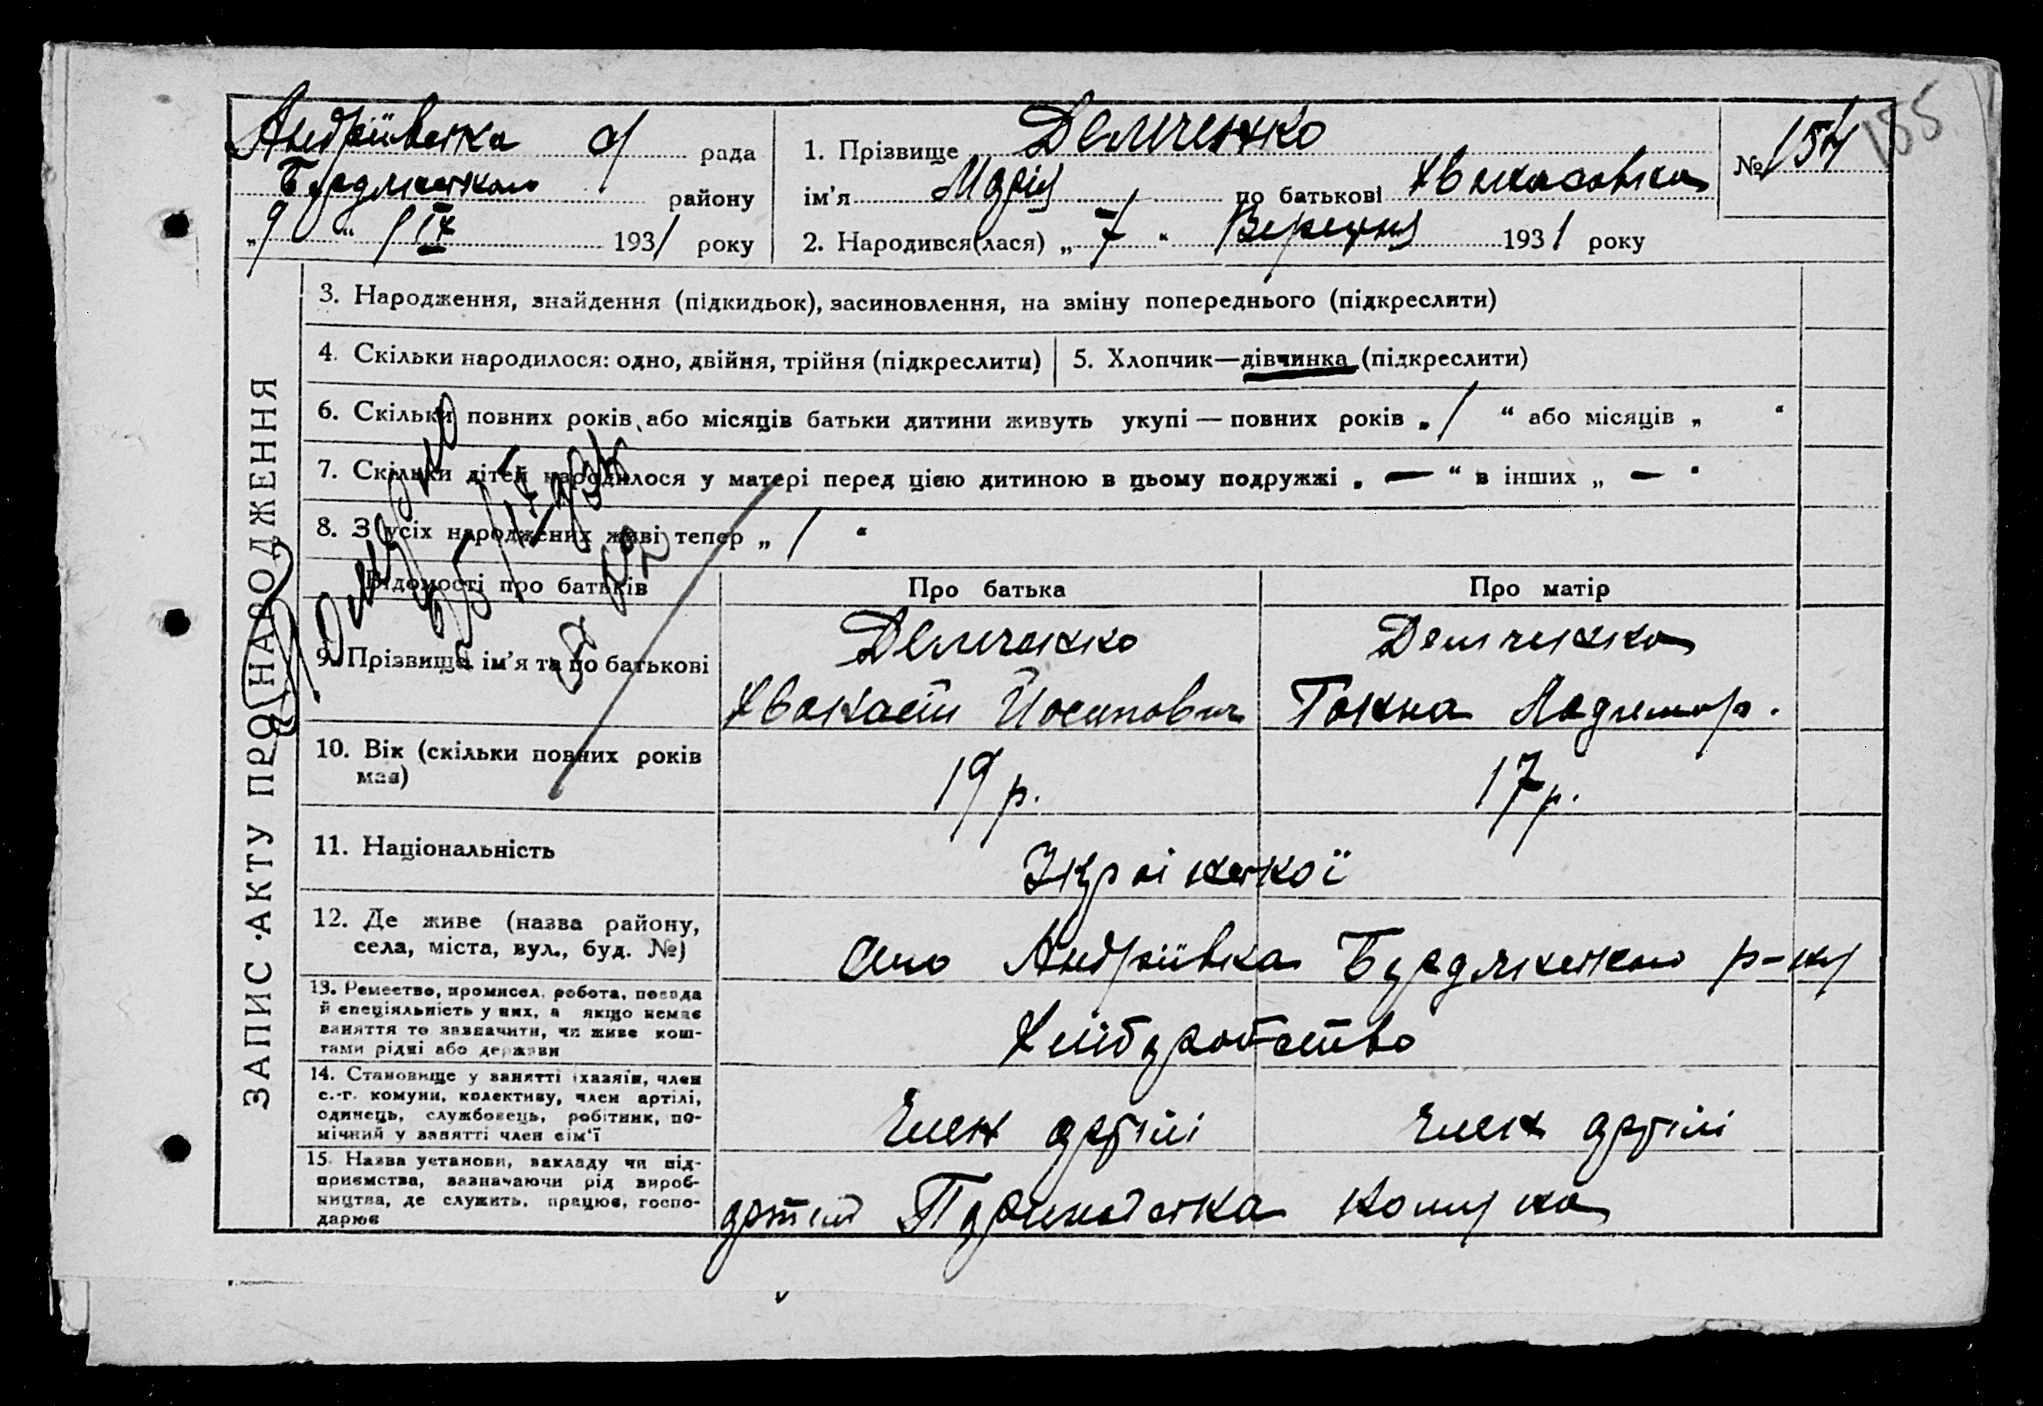 Андріївська с/ рада
Бердянського району
„9“ IX 1931 року
1. Прізвище Демченко
ім’я Марія по батькові
2. Народився(лася) „7“ Вересня 1931 року
№ 154
155
ЗАПИС АКТУ ПРО НАРОДЖЕННЯ
3. Народження, знайдення (підкидьок), засиновлення, на зміну попереднього (підкреслити)
4. Скільки народилося: одно, двійня, трійня (підкреслити)
5. Хлопчик—дівчинка (підкреслити)
6. Скільки повних років або місяців батьки дитини живуть укупі — повних років „1“ або місяців „ “
7. Скільки дітей народилося у матері перед цією дитиною в цьому подружжі „—“ в інших „—“
8. З усіх народжених живі тепер „1“
Відомості про батьків
Про батька
Про матір
9. Прізвище, ім’я та по батькові
Демченко
Йосипович
Демченко
10. Вік (скільки повних років має)
19 р.
17 р.
11. Національність
Української
12. Де живе (назва району,
села, міста, вул., буд. №)
село Андріївка Бердянського р-ну
13. Ремество, промисел, робота, посада
й спеціяльність у них, а якщо немає
заняття то зазначити, чи живе кош-
тами рідні або держави
Хліборобство
14. Становище у занятті (хазяїн, член
с.-г. комуни, колективу, член артілі,
одинець, службовець, робітник, по-
мічний у занятті член сім’ї
Член артілі
Член артілі
15. Назва установи, закладу чи під-
приємства, зазначаючи рід вироб-
ництва, де служить, працює, госпо-
дарює
артіль Паризька комуна